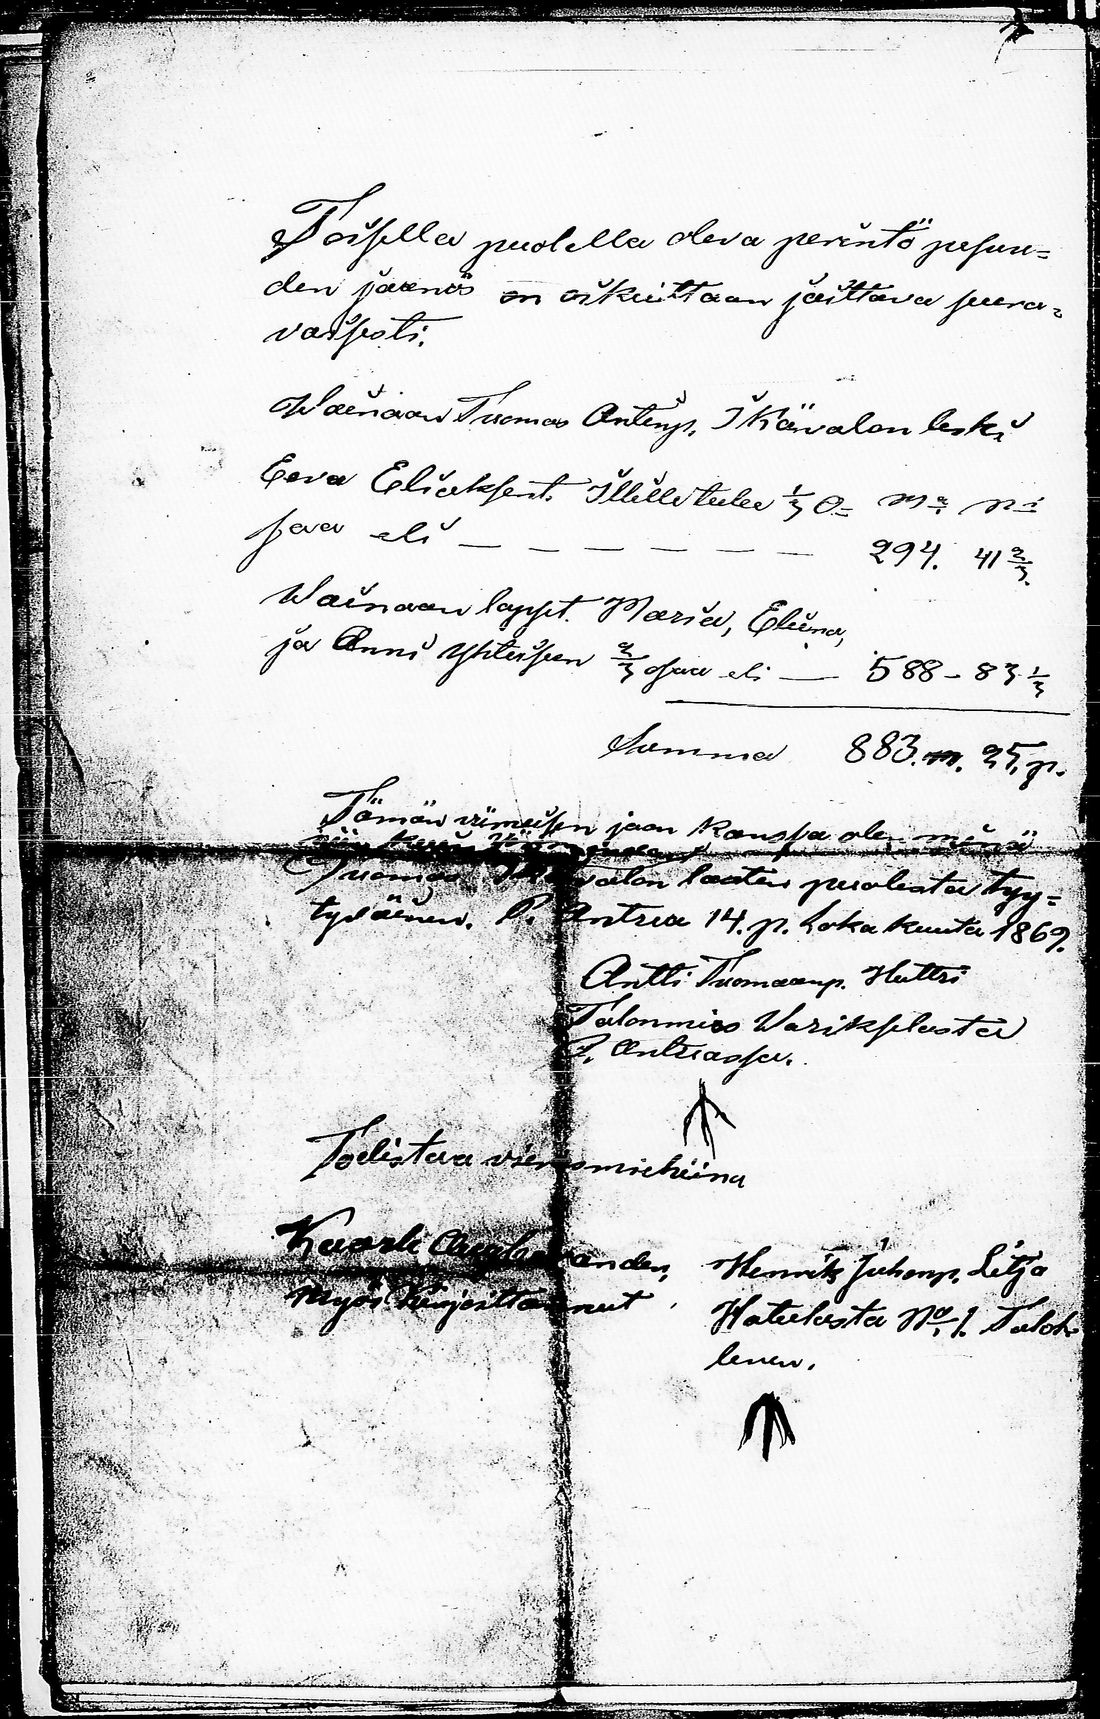 Toisella puolella oleva perintö pesun=
den jäänös on oikeittaan jaittava seura=
vaisesti.
Wainaan Tuomas Antinp. Ikävalon leski
Eeva Eliaksent. Illille tulee 1/3 O= Ma ni
saa eli — — — — — — — 294. 41 2/3.
Wainaan lapset. Maria, Eliina,
ja Anni Yhteiseen 2/3 osaa eli — 588 - 83 1/3
Summa 883. m. 25. p.
Tämän viimeisen jaon kanssa olen minä
niin kuin
Tuomas Ikävalon lasten puolesta tyy=
tyväinen. P. Antrea 14. p. Lokakuuta 1869.
Antti Tuomaanp. Huttri
Talonmies Warikselasta
P. Antreassa.
Todistava vierasmiehiina
Kaarle
Myös Kirjoittanut
Henrik Juhonp. Litja
Hatulasta No 1. Taloh
lenen.